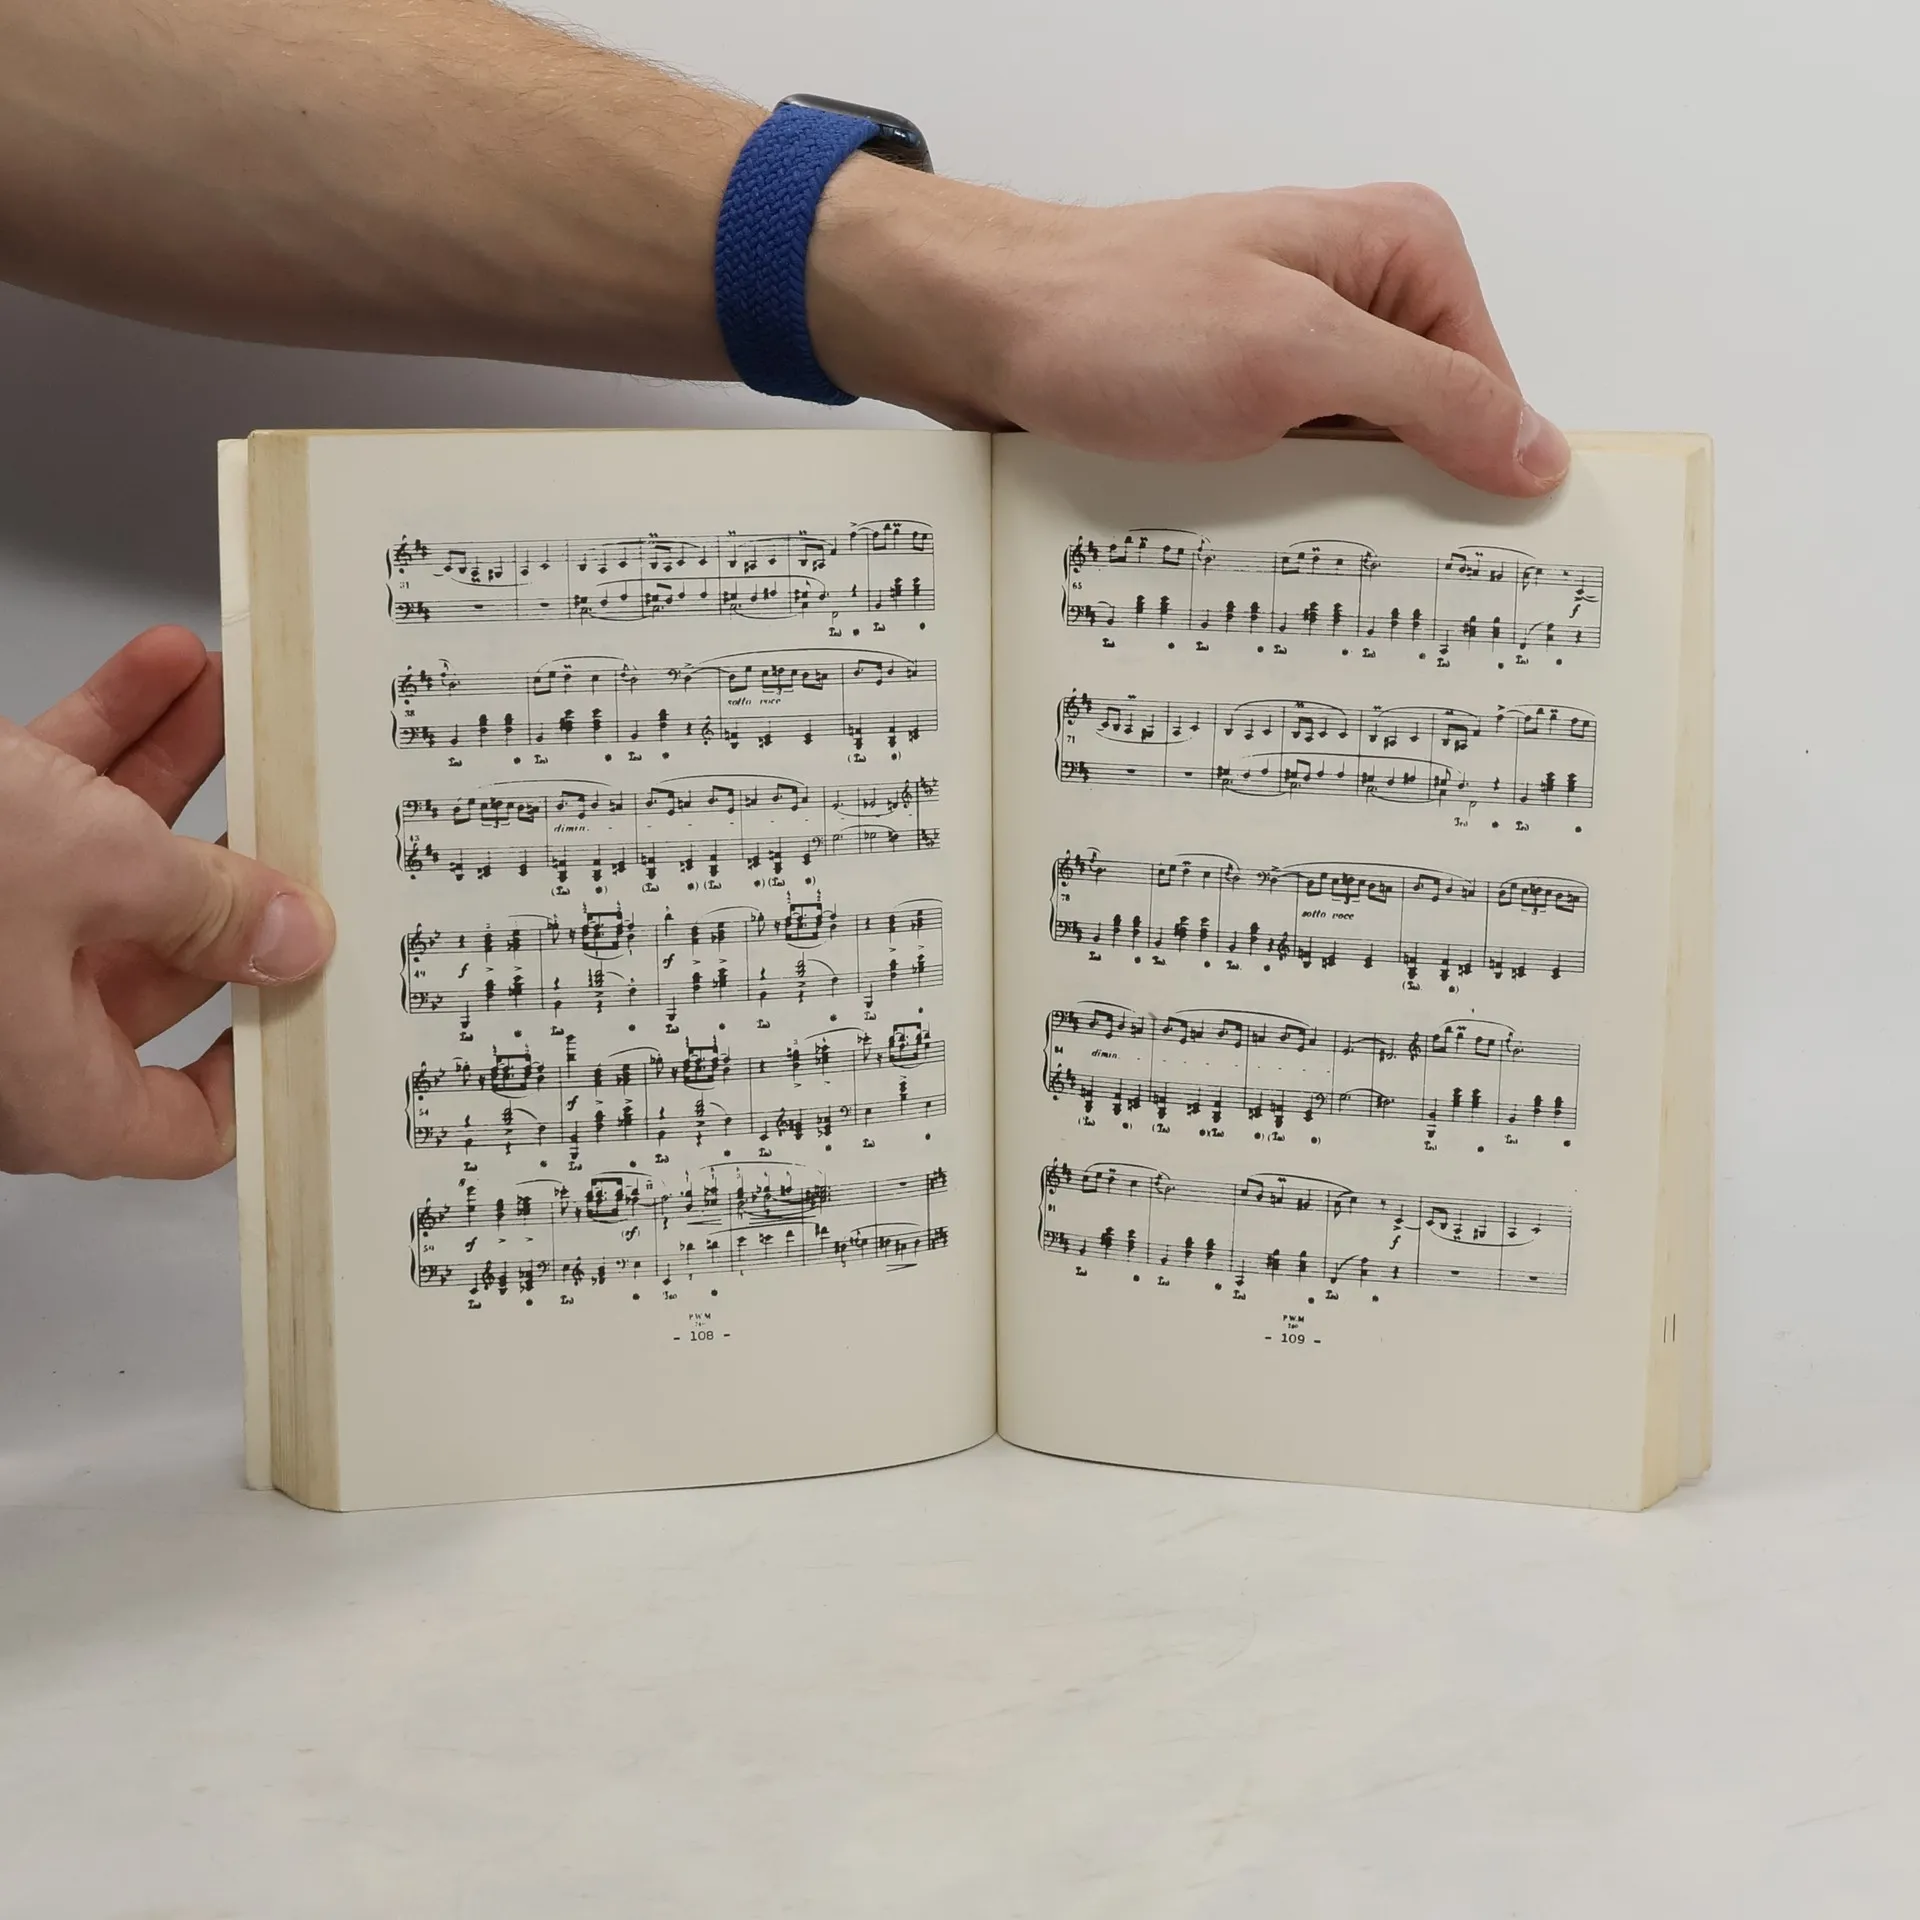 31
38
sotto voce
43
dimin.
49
f
sf
54
sf
59
sf
(sf)
P.W.M
- 108 -
65
f
71
78
sotto voce
84
dimin.
91
f
P.W.M
- 109 -